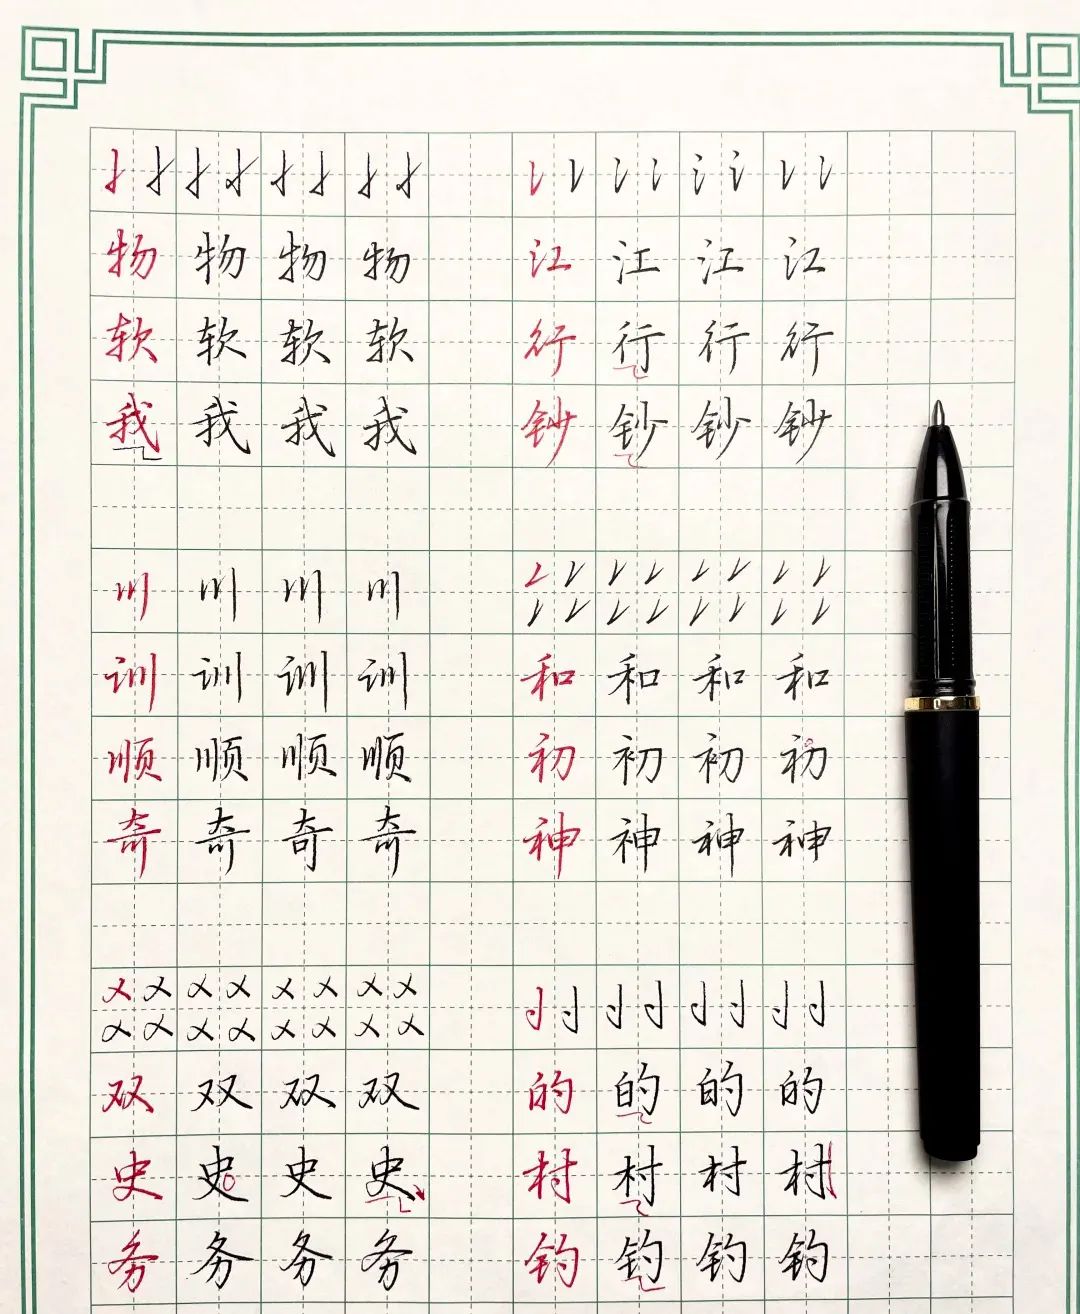 物 物 物 物 江 江 江 江
软 软 软 软 行 行 行 行
我 我 我 我 钞 钞 钞 钞
川 川 川 川
训 训 训 训 和 和 和 和
顺 顺 顺 顺 初 初 初 初
奇 奇 奇 奇 神 神 神 神
双 双 双 双 的 的 的 的
史 史 史 史 村 村 村 村
务 务 务 务 钓 钓 钓 钓